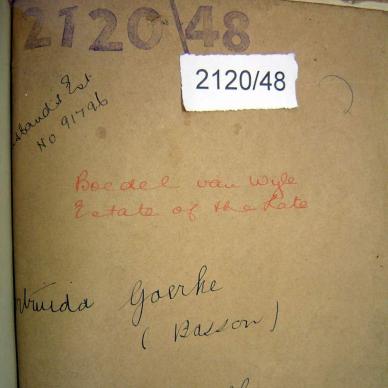 2120/48
2120/48
Husband's Est
No 91796
Boedel van Wyle
Estate of the Late
Goerke
(Basson)